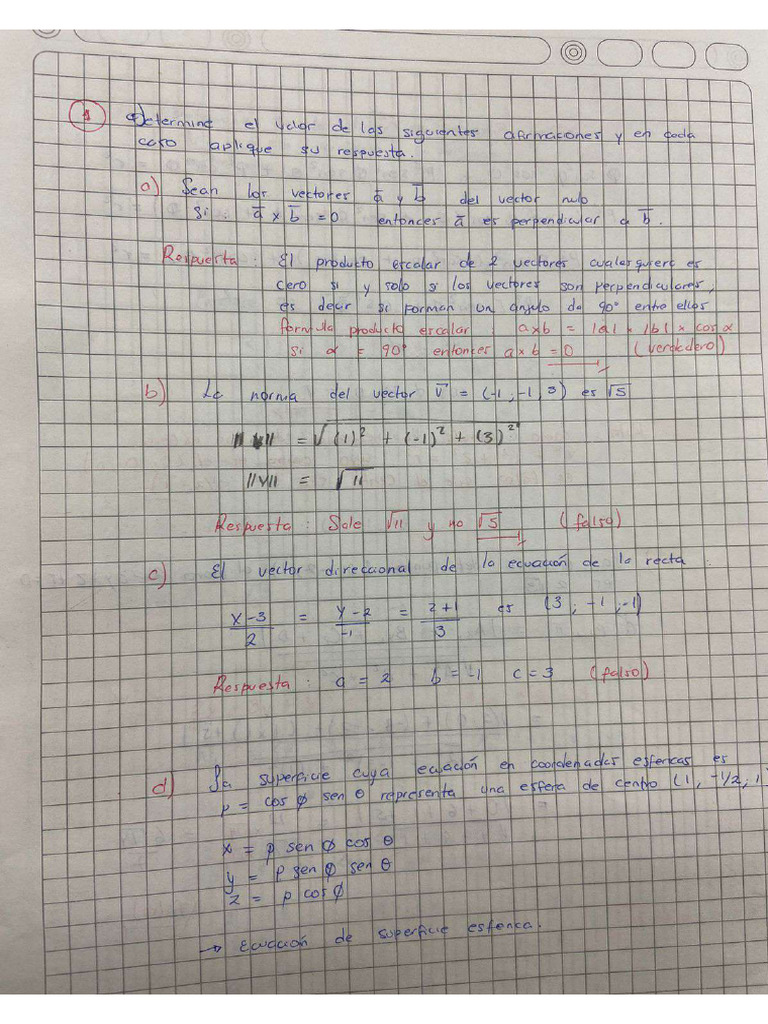 1 Determine el valor de las siguientes afirmaciones y en cada
caso aplique su respuesta.
a) Sean los vectores a̅ y b̅ del vector nulo
Si: a̅ x b̅ = 0 entonces a̅ es perpendicular a b̅.
Respuesta: El producto escalar de 2 vectores cualesquiera es
cero si y solo si los vectores son perpendiculares,
es decir si forman un ángulo de 90° entre ellos
formula producto escalar: a x b = |a| x |b| x cos α
si α = 90° entonces a x b = 0 (verdadero)
b) La norma del vector v̅ = (-1, -1, 3) es √5
= √(1)² + (-1)² + (3)²
||v|| = √11
Respuesta: Sale √11 y no √5 (falso)
c) El vector direccional de la ecuación de la recta
x-3/2 = y-2/-1 = z+1/3 es (3, -1, -1)
Respuesta: a = 2 b = -1 c = 3 (falso)
d) La superficie cuya ecuación en coordenadas esfericas es
ρ = cos ϕ sen θ representa una esfera de centro (1, -1/2, 1
x = ρ sen ϕ cos θ
y = ρ sen ϕ sen θ
z = ρ cos ϕ
→ Ecuación de superficie esferica.